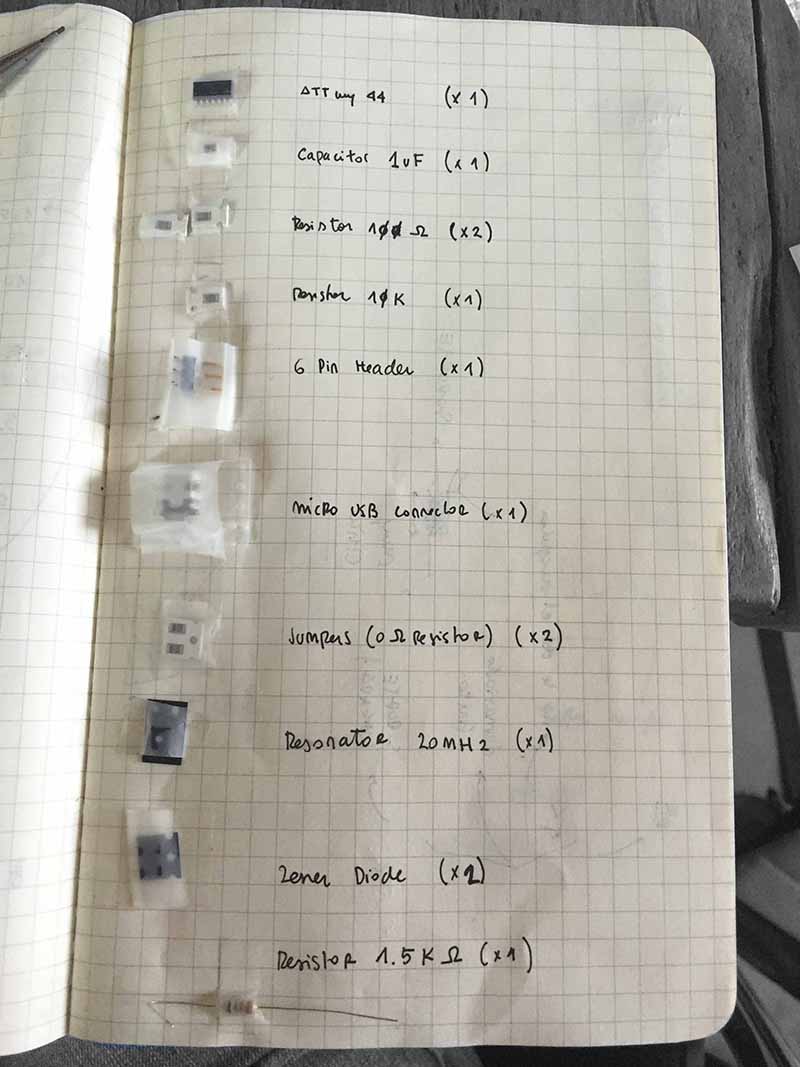 ATTiny 44 (x1)
Capacitor 1uF (x1)
Resistor 100 Ω (x2)
Resistor 10K (x1)
6 Pin Header (x1)
micro USB connector (x1)
Jumpers (0 Ω Resistor) (x2)
Resonator 20MHz (x1)
Zener Diode (x2)
Resistor 1.5 K Ω (x1)